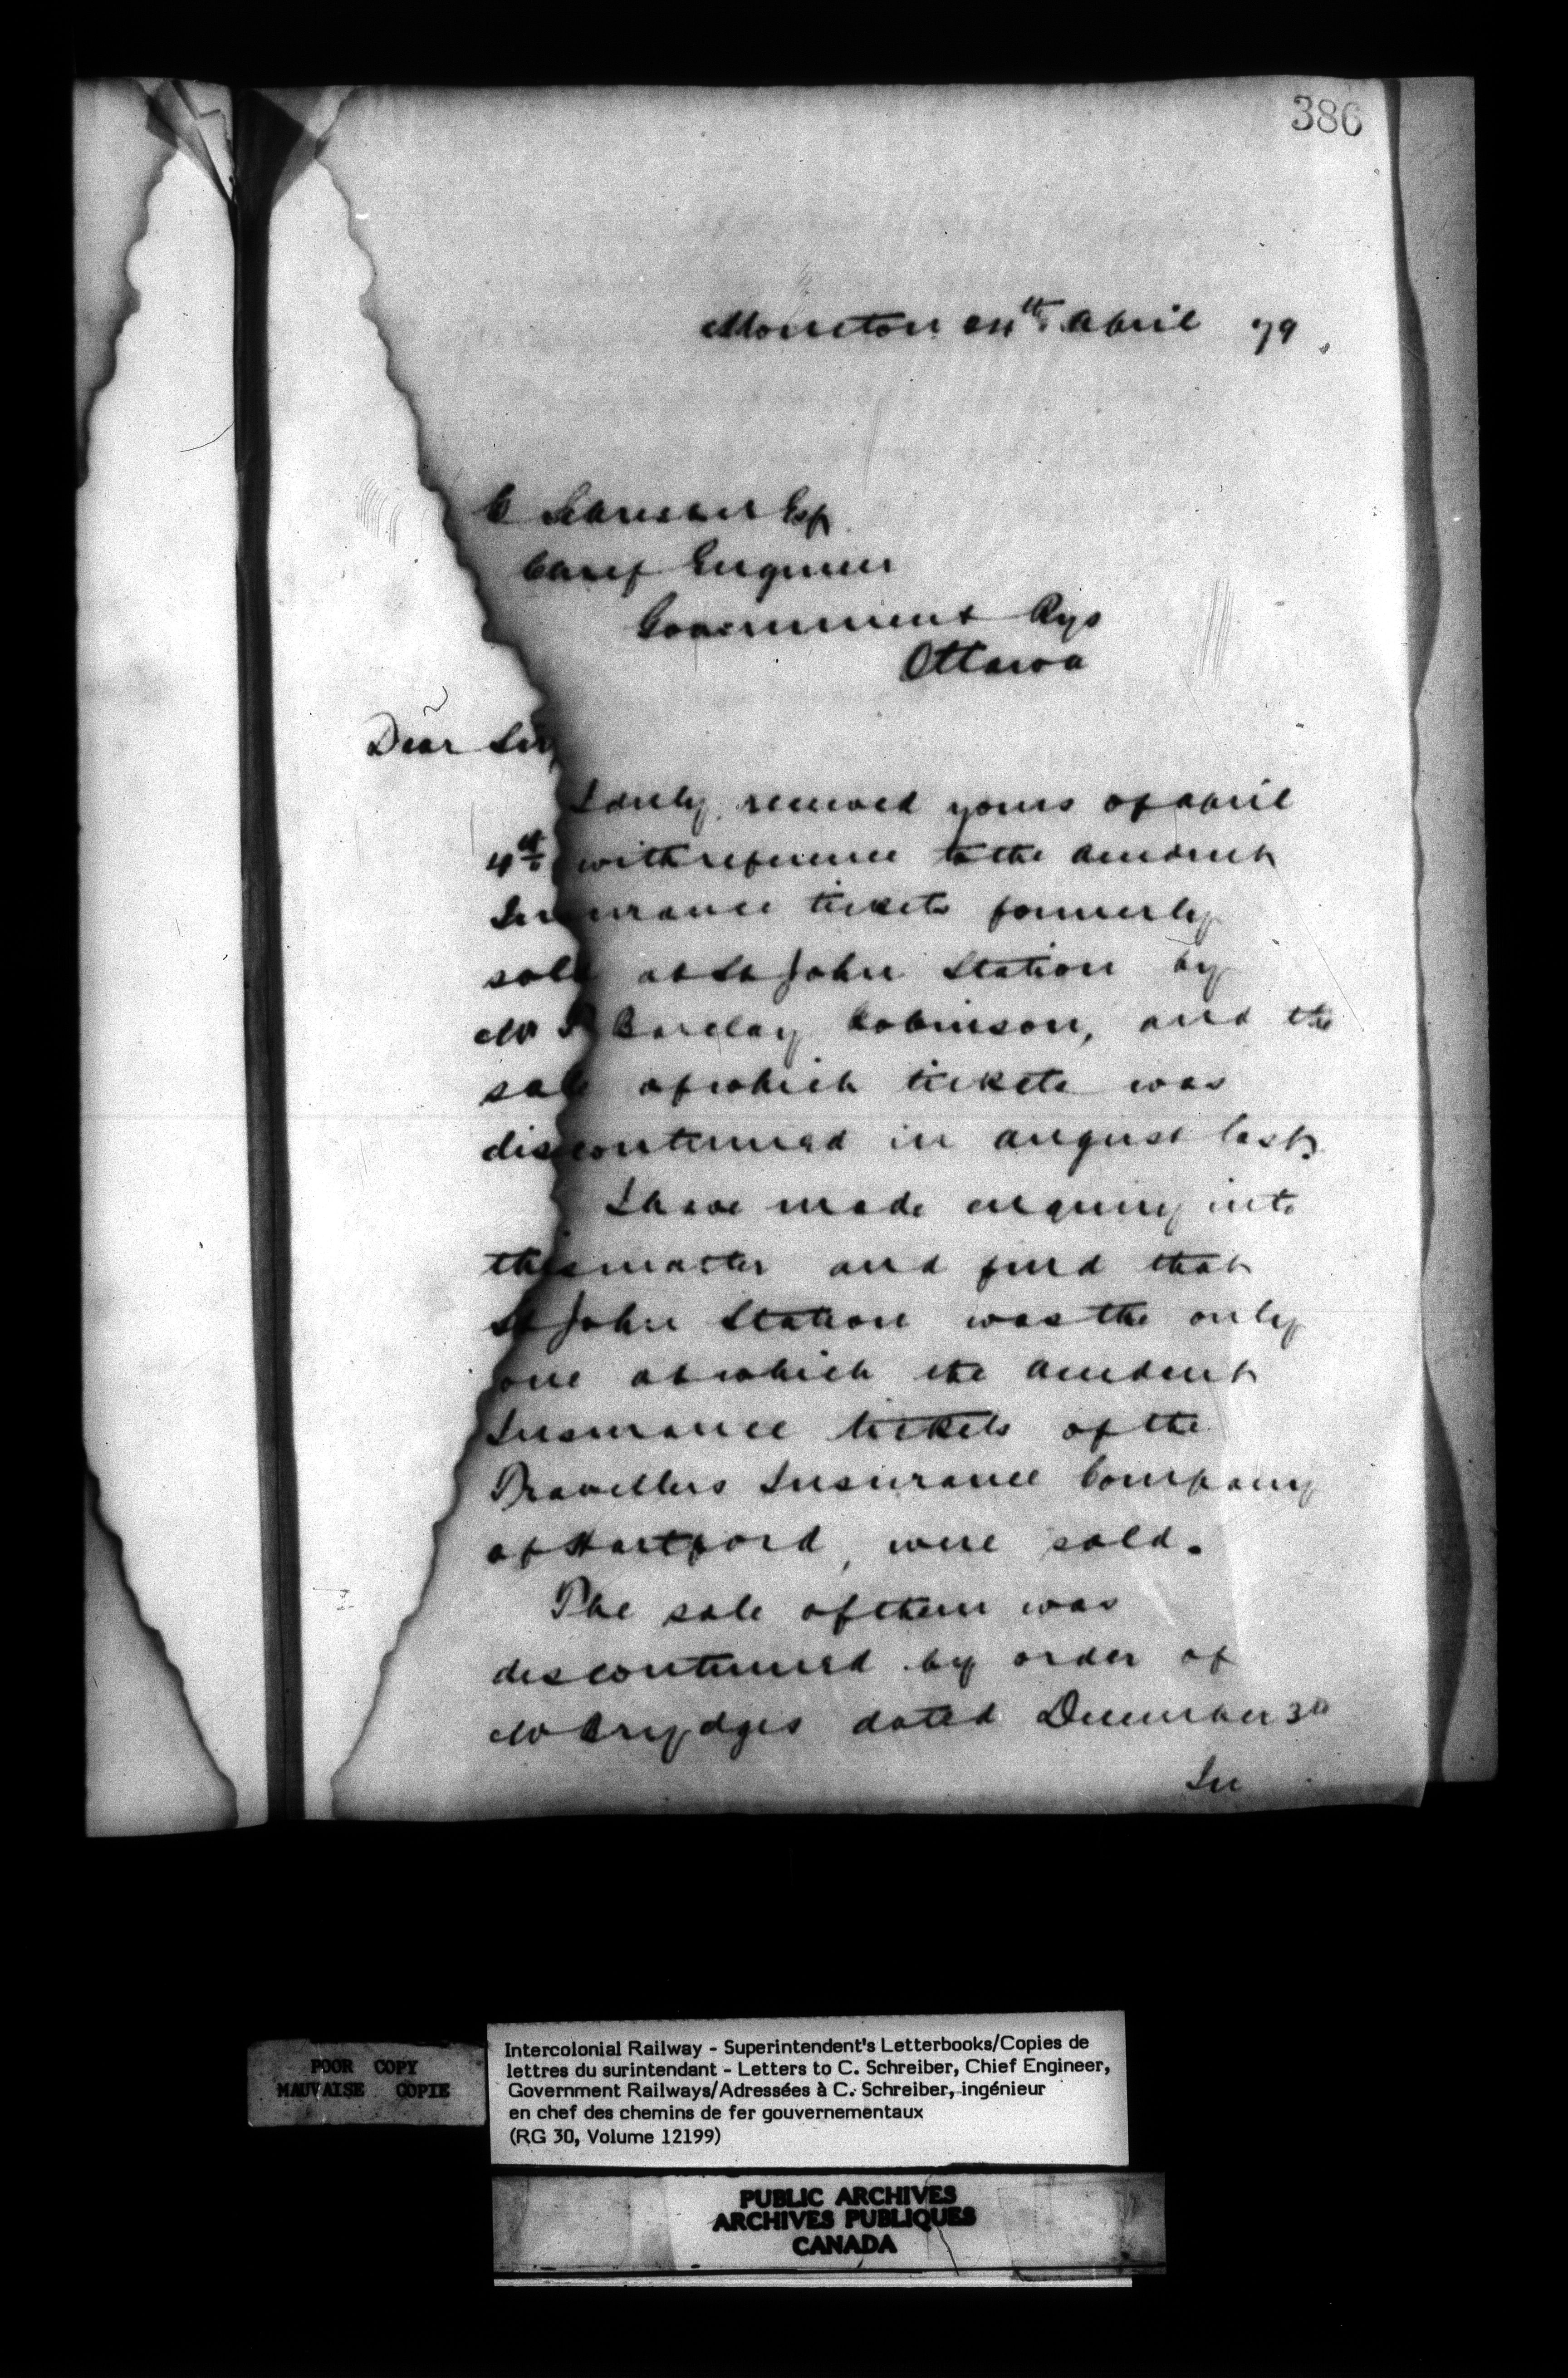 386
Moncton 24th April 79.
C Schreiber Esq
Chief Engineer
Government Rys
Ottawa
Dear Sir
I duly received yours of April
4th with reference to the accident
Insurance tickets formerly
sold at St John Station by
Mr Barclay Robinson, and the
sale of which tickets was
discontinued in August last
I have made enquiry into
this matter and find that
St John Station was the only
one at which the accident
Insurance tickets of the
Travellers Insurance Company
of Hartford, were sold.
The sale of them was
discontinued by order of
Mr Brydges dated December
In
POOR COPY
MAUVAISE COPIE
Intercolonial Railway - Superintendent's Letterbooks/Copies de
lettres du surintendant - Letters to C. Schreiber, Chief Engineer,
Government Railways/Adressées à C. Schreiber, ingénieur
en chef des chemins de fer gouvernementaux
(RG 30, Volume 12199)
PUBLIC ARCHIVES
ARCHIVES PUBLIQUES
CANADA